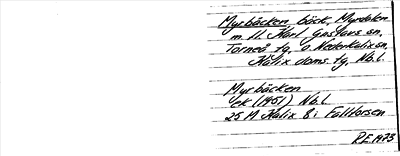 Myrbäcken bäck, Myrdalen
m. fl. Karl Gustavs sn,
Torneå tg, o. Nederkalix sn,
Kalix doms. tg, Nb. l.
Myrbäcken
Eek (1951) Nb. l.
25 M Kalix 8i Fallforsen
R.E. 1973